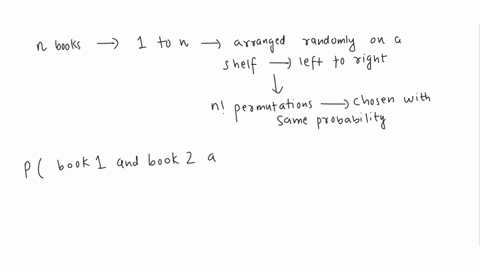 n books → 1 to n → arranged randomly on a
shelf → left to right
↓
n! permutations → chosen with
same probability
P( book 1 and book 2 a